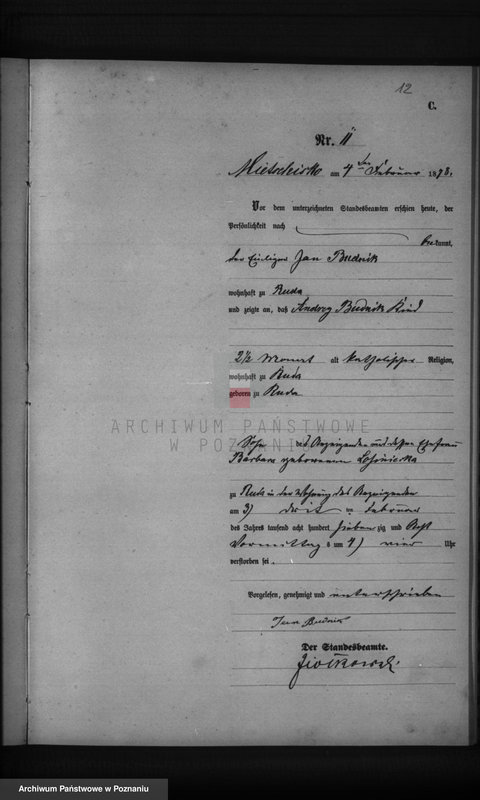 12
C.
Nr. 11
Mietschisko am 4 ten Februar 1878.
Vor dem unterzeichneten Standesbeamten erschien heute, der
Persönlichkeit nach
bekannt,
der Jan Budnik
wohnhaft zu Ruda
und zeigte an, daß Andrey Budnik Kind
2 1/2 Monat alt katholischer Religion,
wohnhaft zu Ruda
geboren zu Ruda
ARCHIWUM PAŃSTWOWE
W POZNANIU
Sohn des Anzeigenden und dessen Ehefrau
Barbara geborenen
zu Ruda in der Wohnung des Anzeigenden
am 3) drit ten Februar
des Jahres tausend acht hundert sieben zig und Acht
Vormittag s um 4) vier Uhr
verstorben sei.
Vorgelesen, genehmigt und unterschrieben
Jan Budnik
Der Standesbeamte.
Archiwum Państwowe w Poznaniu